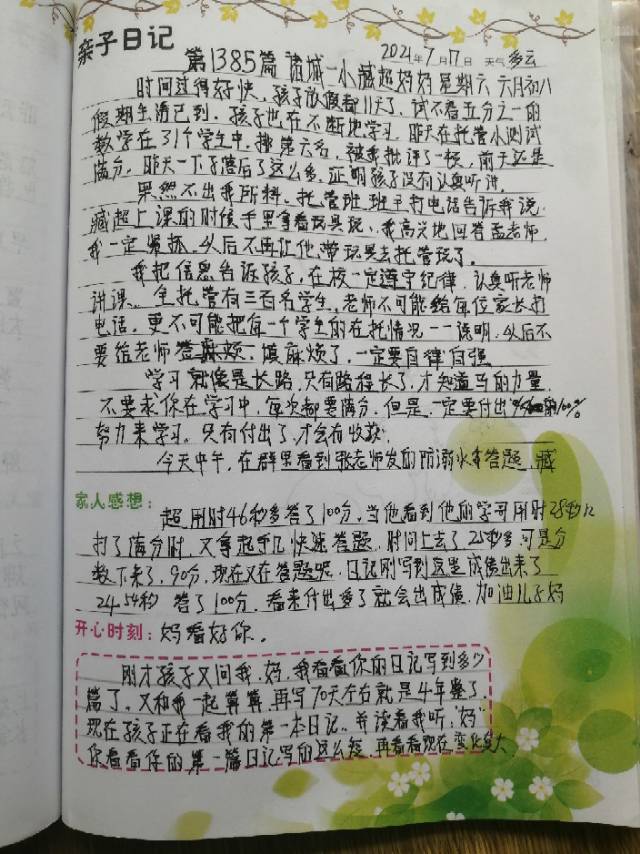 亲子日记
2021年7月17日 天气 多云
第1385篇 诸城一小臧超妈妈 星期六 六月初八
时间过得好快，孩子放假都11天了，试不着五分之一的
假期生活已到，孩子也在不断地学习，昨天在托管小测试
数学在31个学生中，排第六名，被我批评了一顿，前天还是
满分，昨天一下子落后了这么多，证明孩子没有认真听讲。
果然不出我所料，托管班班主打电话告诉我说，
臧超上课的时候手里拿着玩具玩，我高兴地回答孟老师，
我一定紧抓，从后不再让他带玩具去托管玩了。
我把信息告诉孩子，在校一定遵守纪律，认真听老师
讲课。全托管有三百名学生，老师不可能给每位家长打
电话，更不可能把每一个学生的在托情况一一说明，从后不
要给老师添麻烦，一定要自律自强
学习就像是长路，只有路程长了，才知道马的力量，
不要求你在学习中，每次都要满分，但是一定要付出100%
努力来学习。只有付出了，才会有收获。
今天中午，在群里看到张老师发的防溺水答题，臧
家人感想：
超用时46秒多答了100分，当他看到他的学哥用时28秒
打了满分时，又拿起手机快速答题，时间上去了，25秒多可是分
数下来了，90分，现在又在答题呢，日记刚写到这里成绩出来了
24.54秒 答了100分，看来付出多了就会出成绩，加油儿子妈
开心时刻：妈看好你。
刚才孩子又问我，妈，我看看你的日记写到多少
篇了，又和我一起算算，再写70天左右就是4年整了，
现在孩子正在看我的第一本日记，并读着我听，“妈”
你看看你的第一篇日记写的这么短，再看看现在变化多大